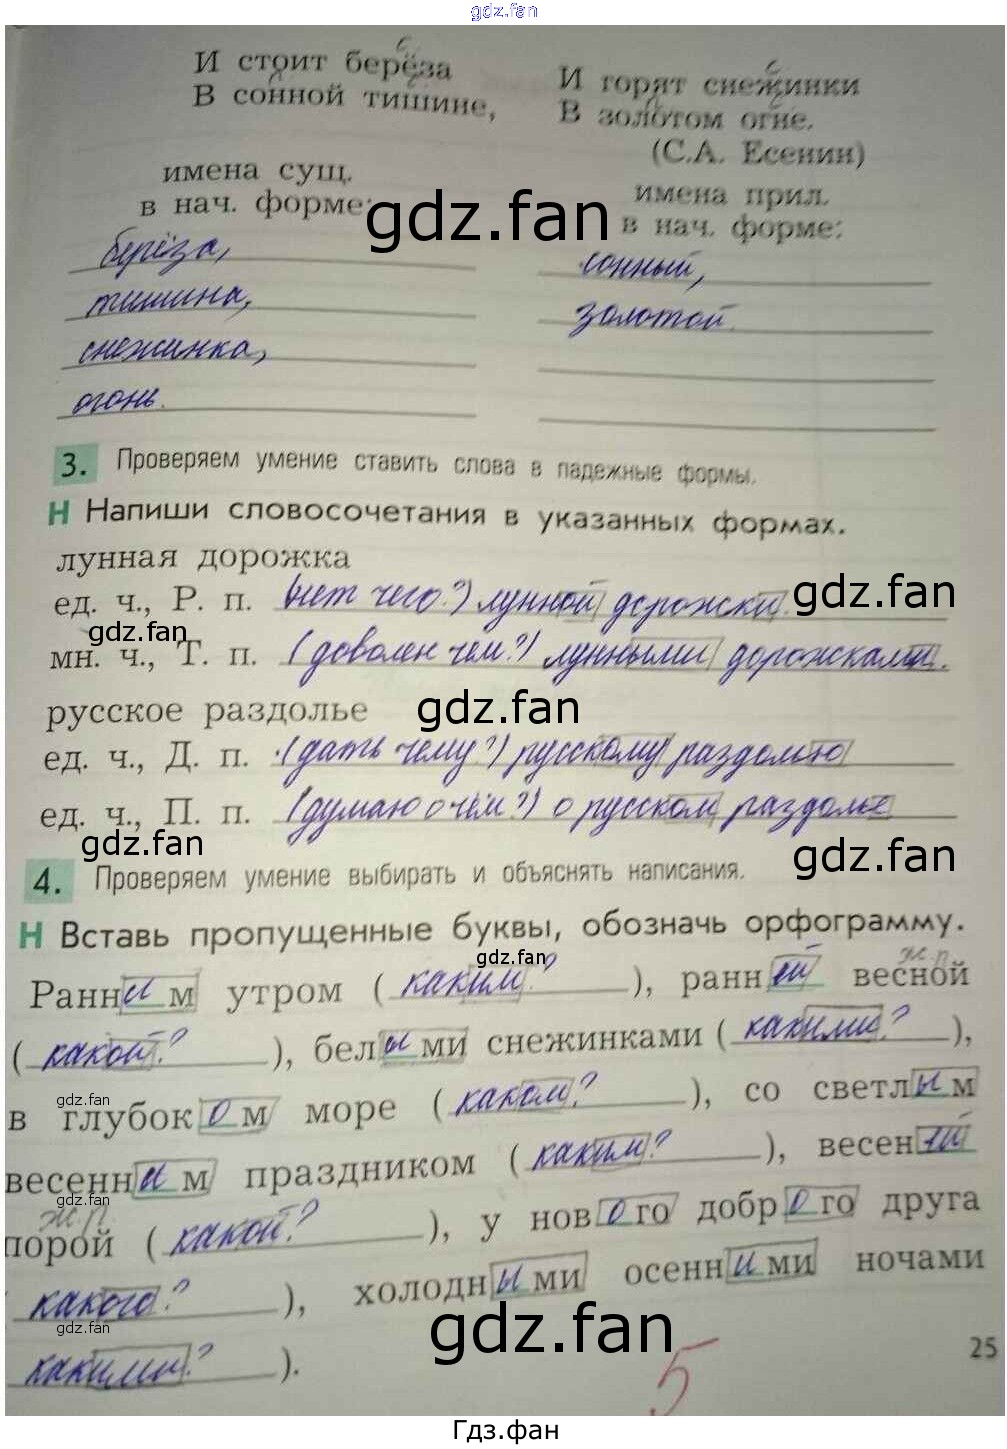 gdz.fan
И стоит берёза
В сонной тишине,
И горят снежинки
В золотом огне.
(С.А. Есенин)
имена сущ.
в нач. форме:
имена прил.
в нач. форме:
gdz.fan
берёза,
тишина,
снежинка,
огонь.
сонный,
золотой.
3. Проверяем умение ставить слова в падежные формы.
Н Напиши словосочетания в указанных формах.
лунная дорожка
ед. ч., Р. п. (нет чего?) лунной дорожки.
gdz.fan
gdz.fan
мн. ч., Т. п. (доволен чем?) лунными дорожками.
русское раздолье
gdz.fan
ед. ч., Д. п. (дать чему?) русскому раздолью
ед. ч., П. п. (думаю о чём?) о русском раздолье
gdz.fan
gdz.fan
4. Проверяем умение выбирать и объяснять написания.
Н Вставь пропущенные буквы, обозначь орфограмму.
gdz.fan
ж.р.
Ранним утром (каким?), ранней весной
(какой?), белыми снежинками (какими?),
gdz.fan
в глубоком море (каком?), со светлым
весенним праздником (каким?), весенней
gdz.fan
ж.р.
порой (какой?), у нового доброго друга
(какого?), холодными осенними ночами
gdz.fan
gdz.fan
(какими?).
5
25
Гдз.фан